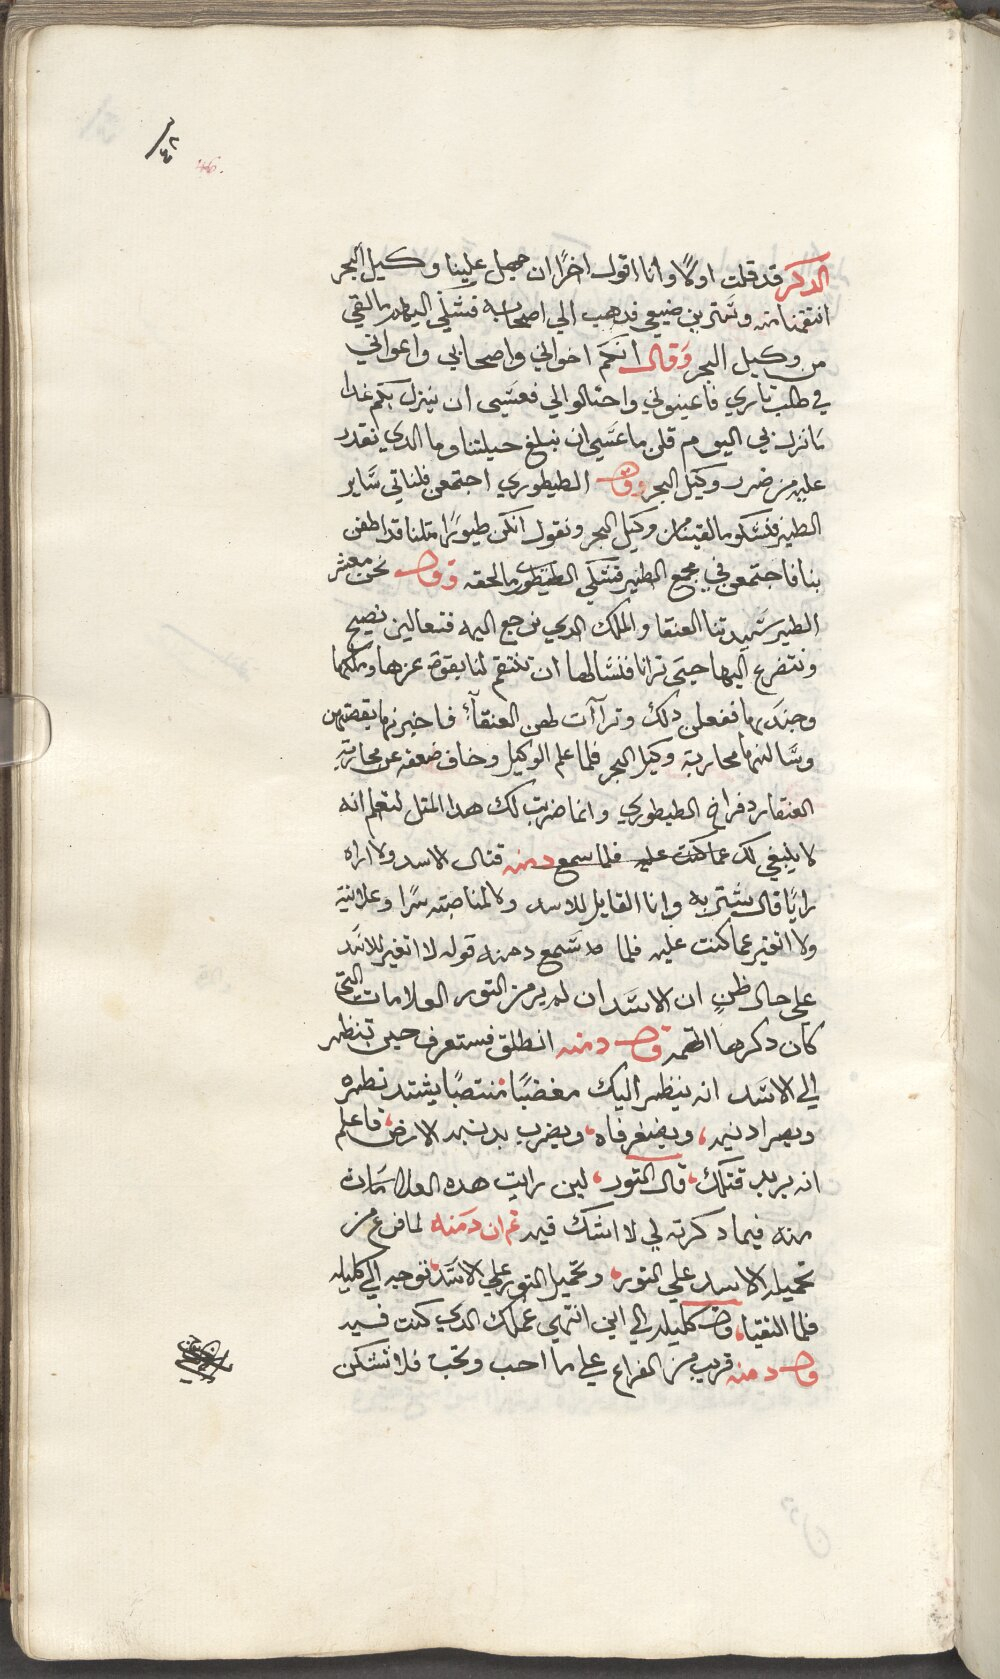 ٤٦
46.
الدكر قد قلت اولًا وانا اقول اخرًا ان جهل علينا وكيل البحر
انتقمنا منه وسترين صنيعي فدهب الي اصحابه فشكي اليهم مالقي
من وكيل البحر وقال انكم اخواني واصحابي واعواني
في طلب تاري فاعينوني واحتالو الي فعسي ان ينزل بكم غدا
مانزل بي اليوم قلن ماعسي ان نبلغ حيلتنا وما الدي نقدر
عليه من ضرر وكيل البحر وقال الطيطوري اجتمعن فلناتي ساير
الطير فنشكو مالقينا من وكيل البحر ونقول انكن طيورًا متلنا قد
بنا فاجتمعن في مجمع الطير فشكي الطيطوري مالحقه وقال نحن معشر
الطير سيدتنا العنقا والملك الدي نرجع اليه فتعالين نصيح
ونتضرع اليها حتي ترانا فنسالها ان تنتقم لنا بقوة عزها وملكها
وجندها ففعلن دلك وتراآت لهن العنقآء فاخبرنها بقصتهن
وسالنها محاربة وكيل البحر فلما علم الوكيل وخاف ضعفه عن محاربة
العنقا رد فراخ الطيطوري وانما ضربت لك هدا المتل لتعلم انه
لا ينبغي لك عما كنت عليه فلما سمع دمنه قتال الاسد ولا اراه
رايًا قال شتربه وانا القايل للاسد ولا لمناصبته سرًا وعلانية
ولا اتغير عما كنت عليه فلما سمع دمنه قوله لا اتغير للاسد
علي حال ظن ان الاسد ان لم ير من التور العلامات التي
كان دكرها اتهمه قال دمنه انطلق فستعرف حين تنظر
الي الاسد انه ينظر اليك مغضبًا منتصبًا يشتد نظره
ويصر ادنيه، ويفغر فاه، ويضرب بدنبه الارض، فاعلم
انه يريد قتلك، قال التور، لين رايت هده العلامات
منه فيما دكرته لي لا اشك فيه تم ان دمنه لما فرغ من
تحميله الاسد علي التور، وتحميل التور علي الاسد، توجه الي كليله
فلما التقيا، قال كليله الي اين انتهي عملك الدي كنت فيه
قال دمنه قريب من الفراغ علي ما احب وتحب فلا تشكن